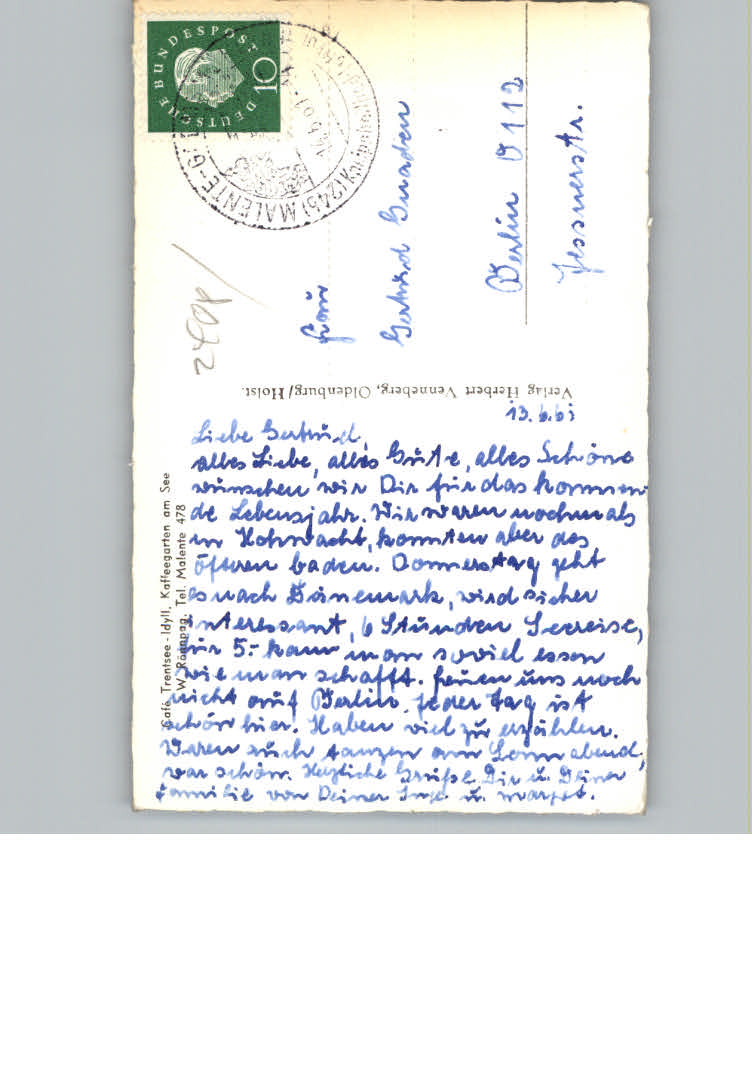 DEUTSCHE BUNDESPOST
10
(24b) MALENTE-G
Frau
Gertrud
Berlin O 112
Jessnerstr.
Verlag Herbert Venneberg, Oldenburg/Holst.
Café Trentsee-Idyll, Kaffeegarten am See
Tel. Malente 478
13.6.61
Liebe Gertrud,
alles Liebe, alles Gute, alles Schöne
wünschen wir Dir für das kommen-
de Lebensjahr. Wir waren nochmals
in Hohwacht, konnten aber des
öfteren baden. Donnerstag geht
es nach Dänemark, wird sicher
interessant, 6 Stunden Seereise,
für 5.- kann man soviel essen
wie man schafft. freuen uns noch
nicht auf Berlin, jeder Tag ist
schön hier. Haben viel zu erzählen.
Waren auch tanzen am Sonnabend,
war schön. Herzliche Grüße Dir u. Deiner
Familie von Deiner Inge u. Margot.